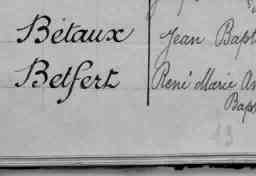 Bétaux Jean Bapt
Betfert René Marie An
Bapt
13